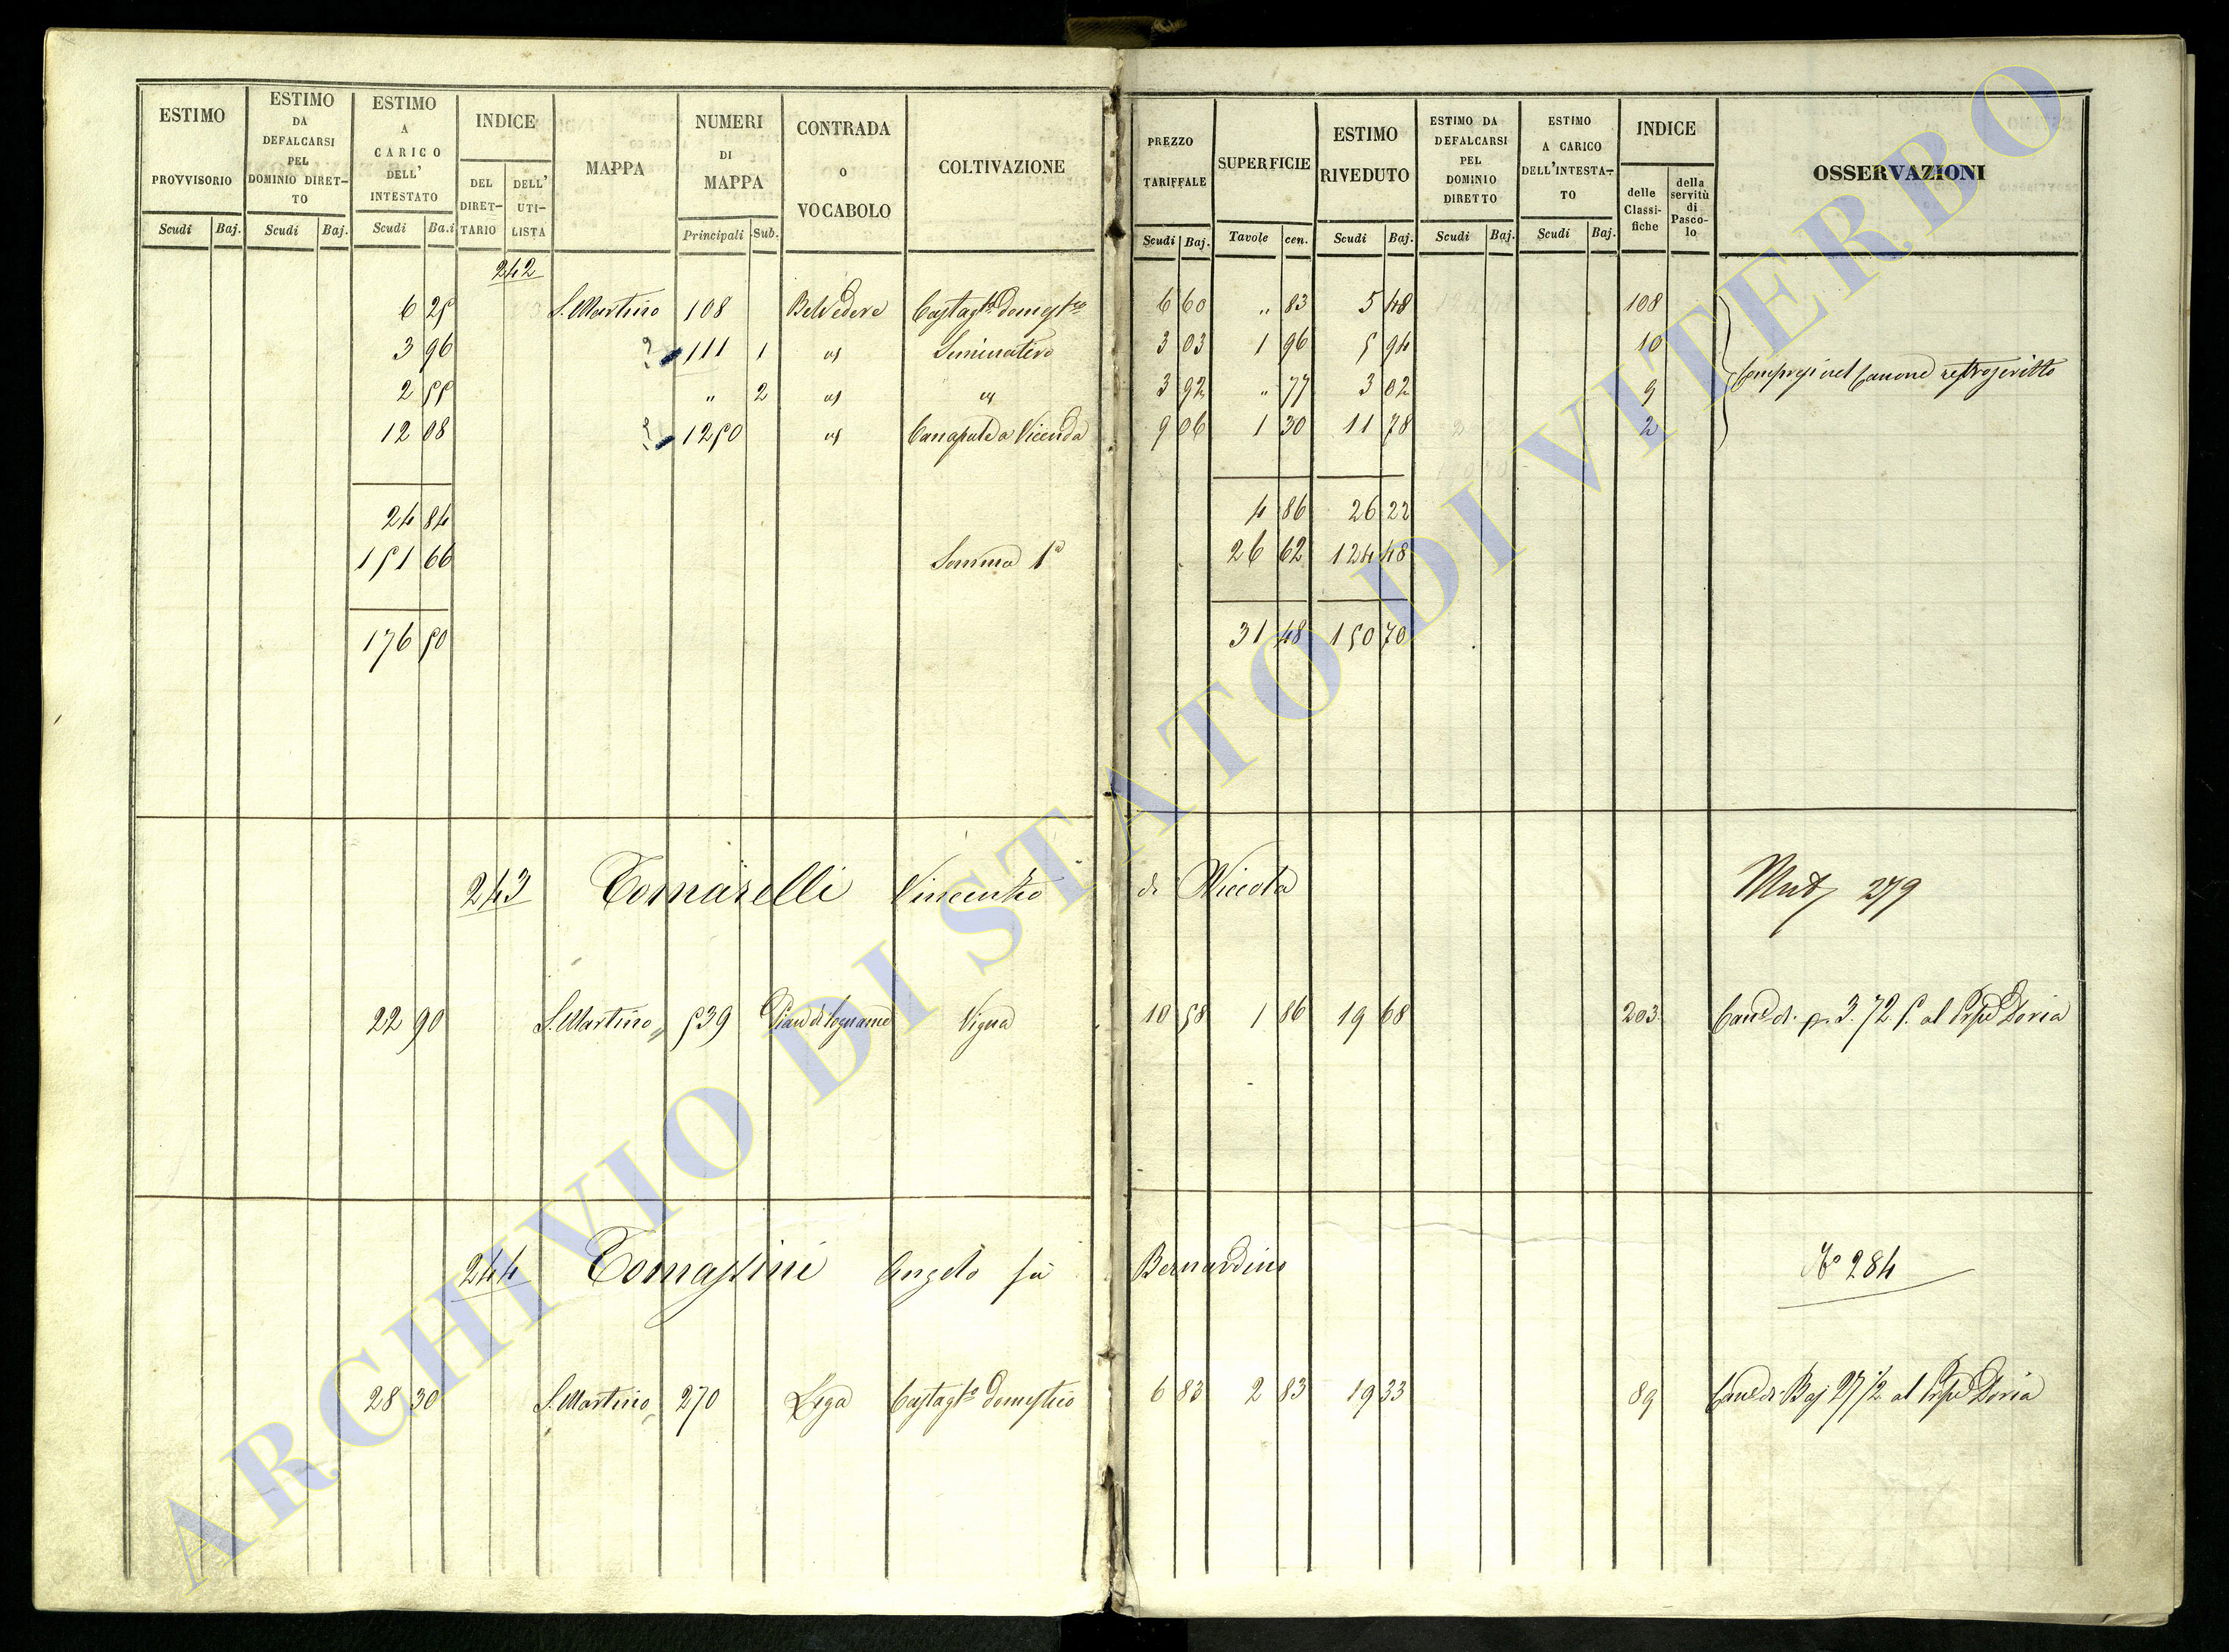 ESTIMO PROVVISORIO Scudi Baj.
ESTIMO DA DEFALCARSI PEL DOMINIO DIRET-TO Scudi Baj.
ESTIMO A CARICO DELL' INTESTATO Scudi Ba.i
INDICE DEL DIRET-TARIO DELL' UTI-LISTA
MAPPA
NUMERI DI MAPPA Principali Sub.
CONTRADA o VOCABOLO
COLTIVAZIONE
PREZZO TARIFFALE Scudi Baj.
SUPERFICIE Tavole cen.
ESTIMO RIVEDUTO Scudi Baj.
ESTIMO DA DEFALCARSI PEL DOMINIO DIRETTO Scudi Baj.
ESTIMO A CARICO DELL'INTESTA-TO Scudi Baj.
INDICE delle Classi-fiche della servitù di Pasco-lo
OSSERVAZIONI
242
6 25 S. Martino 108 Belvedere Castagto domestco 6 60 " 83 5 48 108
3 96 111 1 id Seminativo 3 03 1 96 5 94 10
Compresi nel Canone retroscritto
2 55 " 2 id id 3 92 " 77 3 02 9
12 08 1250 id Canapule a Vicenda 9 06 1 30 11 78 2
24 84 4 86 26 22
151 66 Somma 1a 26 62 124 48
176 50 31 48 150 70
243 Tomarelli Vincenzo di Niccola 279
22 90 S. Martino 539 Pian di legname Vigna 10 58 1 86 19 68 203 Cane di p. 3.72.5. al Doria
244 Tomassini Angelo fu Bernardino No 284
28 30 S. Martino 270 Lega Castagto domestico 6 83 2 83 19 33 89 Cane di Baj 27 1/2 al Doria
ARCHIVIO DI STATO DI VITERBO